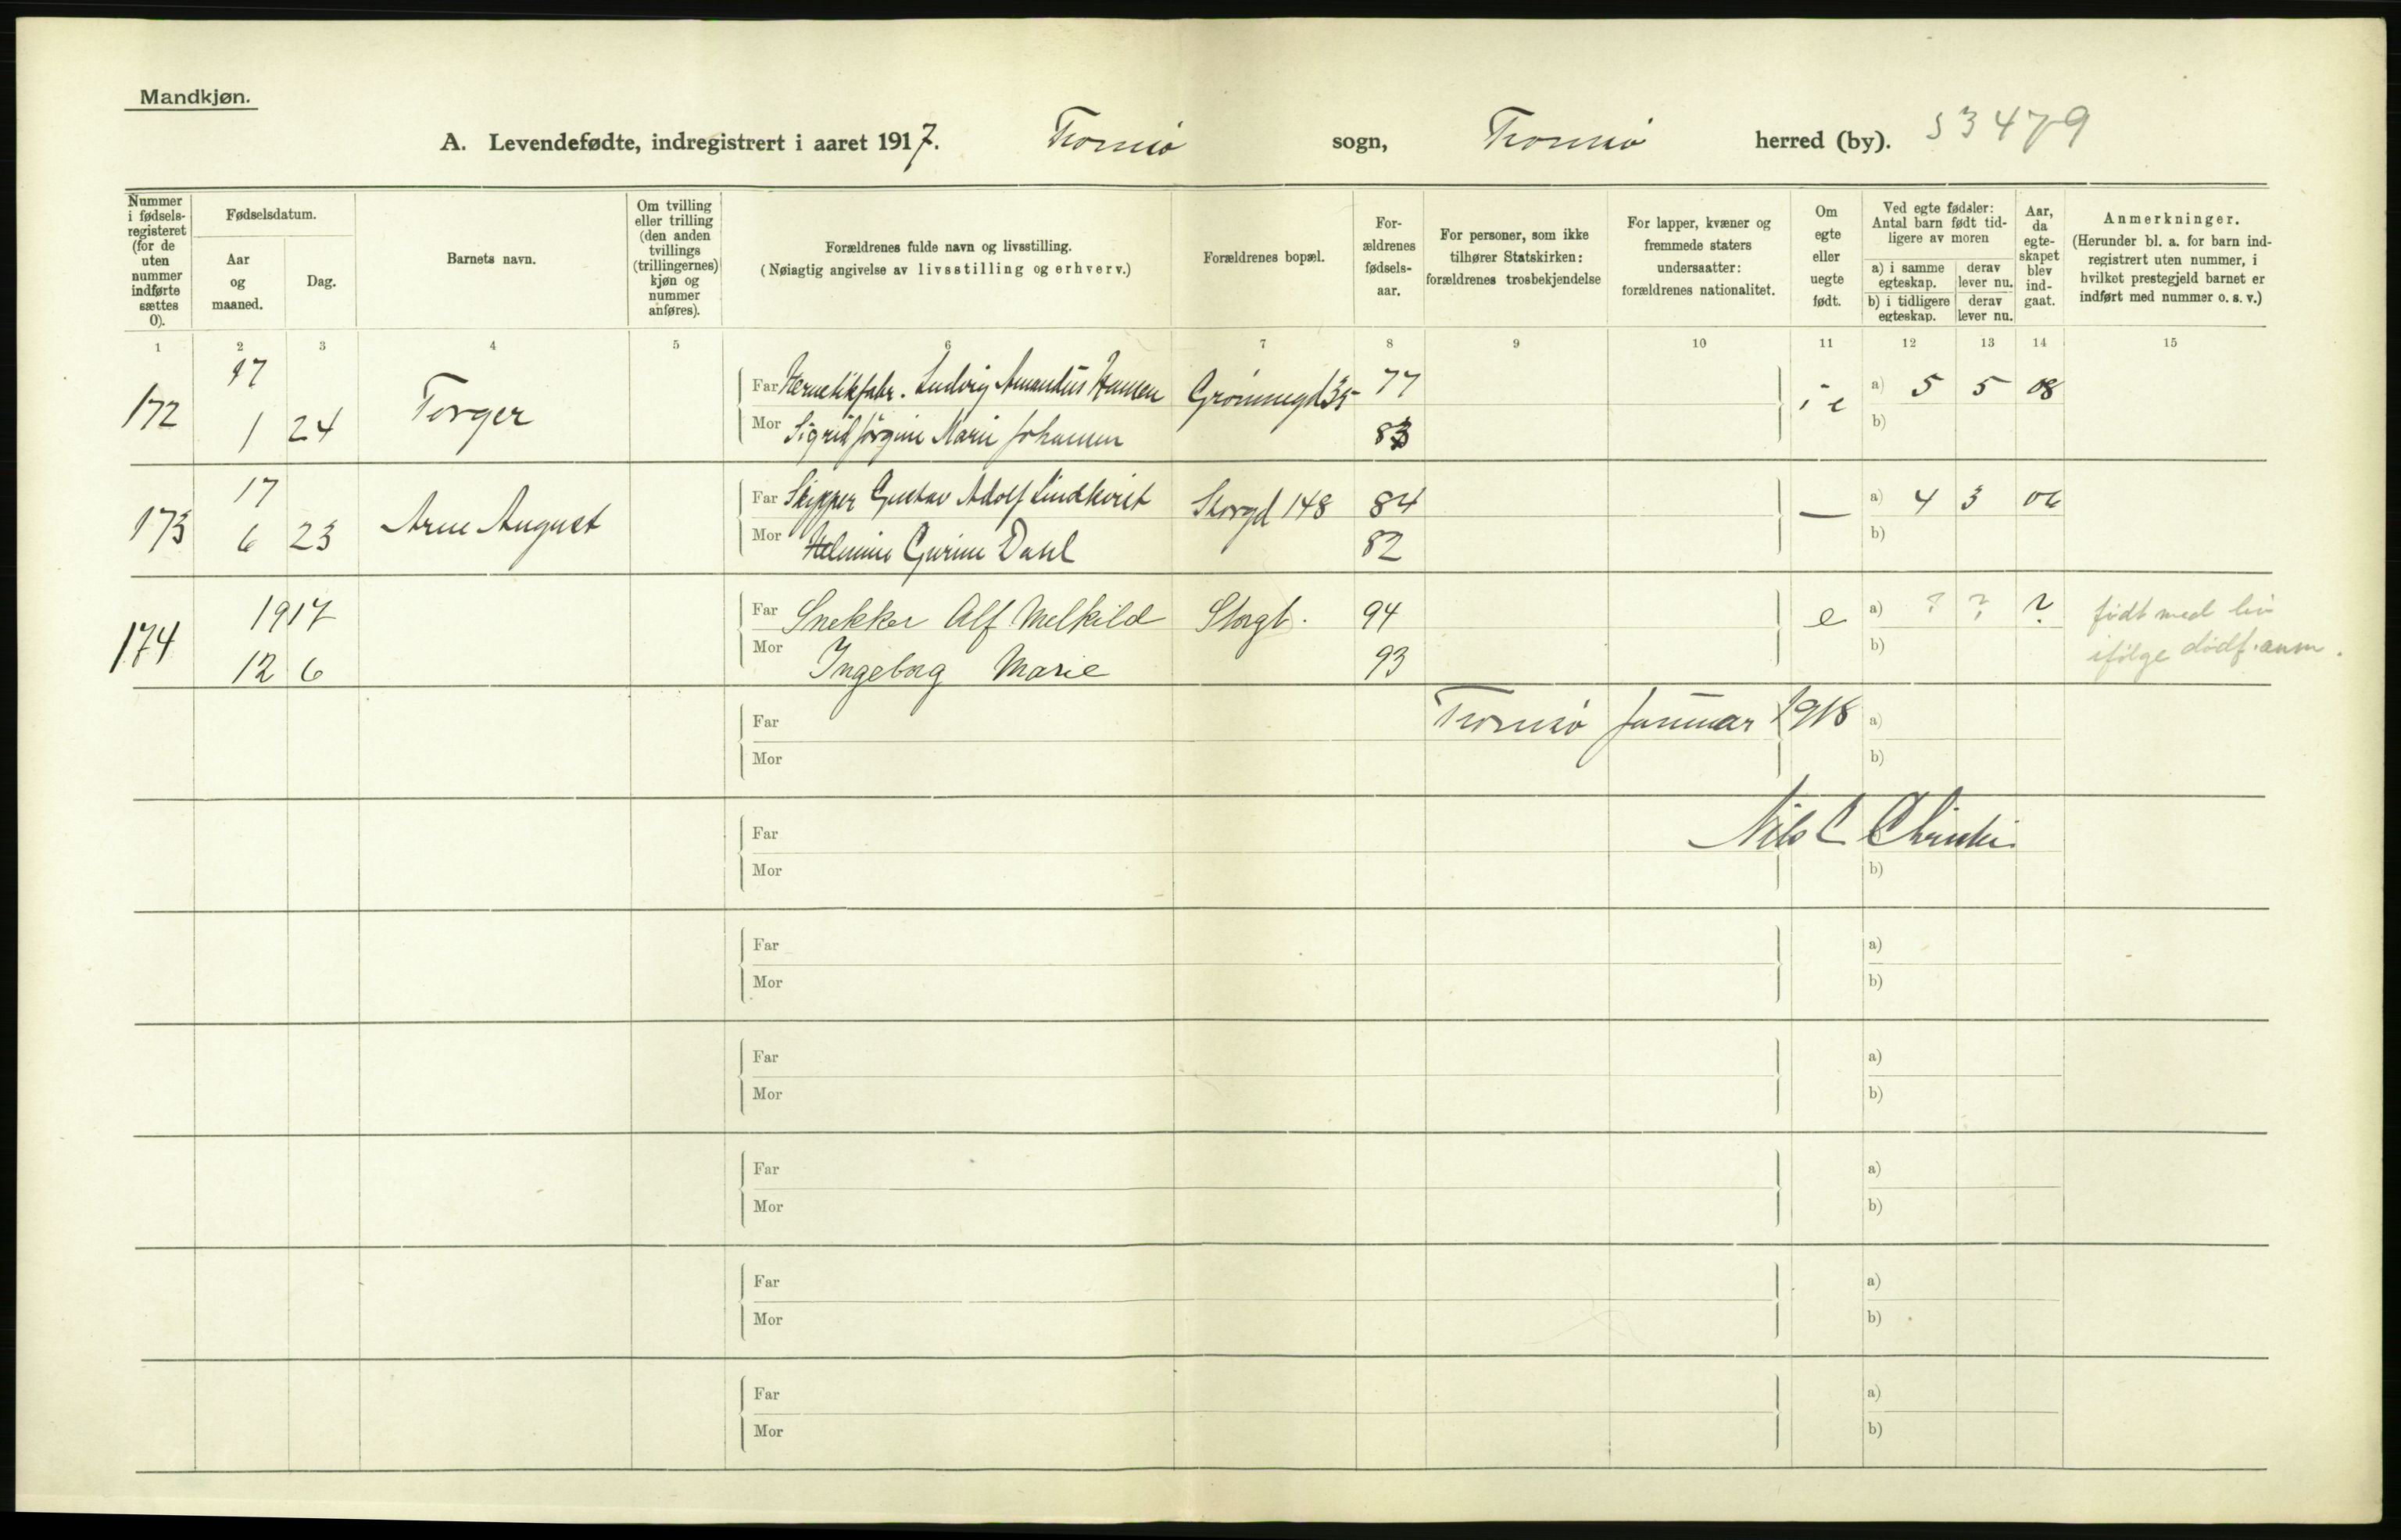 Mandkjøn.
A. Levendefødte, indregistrert i aaret 1917. Tromsø sogn, Tromsø herred (by). 53479
Nummer i fødselsregisteret (for de uten nummer indførte sættes 0).
Fødselsdatum.
Aar og maaned.
Dag.
Barnets navn.
Om tvilling eller trilling (den anden tvillings (trillingernes) kjøn og nummer anføres).
Forældrenes fulde navn og livsstilling.
(Nøiagtig angivelse av livsstilling og erhverv.)
Forældrenes bopæl.
Forældrenes fødselsaar.
For personer, som ikke tilhører Statskirken: forældrenes trosbekjendelse
For lapper, kvæner og fremmede staters undersaatter: forældrenes nationalitet.
Om egte eller uegte født.
Ved egte fødsler: Antal barn født tidligere av moren
a) i samme egteskap. derav lever nu.
b) i tidligere egteskap. derav lever nu.
Aar, da egteskapet blev indgaat.
Anmerkninger.
(Herunder bl. a. for barn indregistrert uten nummer, i hvilket prestegjeld barnet er indført med nummer o. s. v.)
1 2 3 4 5 6 7 8 9 10 11 12 13 14 15
172 17 1 24 Torger Far Hermetikfabr. Ludvig Amandus Hansen Grønnegd 35 77 i e a) 5 5 08
Mor Sigrid Jørgine Marie Johansen 83 b)
173 17 6 23 Arne August Far Skipper Gustav Adolf Lindkvist Storgd 148 84 — a) 4 3 06
Mor Helmine Gurine Dahl 82 b)
174 1917 12 6 Far Snekker Alf Melkild Storgt. 94 e a) ? ? ? født med liv
Mor Ingeborg Marie 93 b) ifølge dødf. anm.
Far Tromsø Januar 1918 a)
Mor b)
Far Nils C Christie
Mor b)
Far a)
Mor b)
Far a)
Mor b)
Far a)
Mor b)
Far a)
Mor b)
Far a)
Mor b)